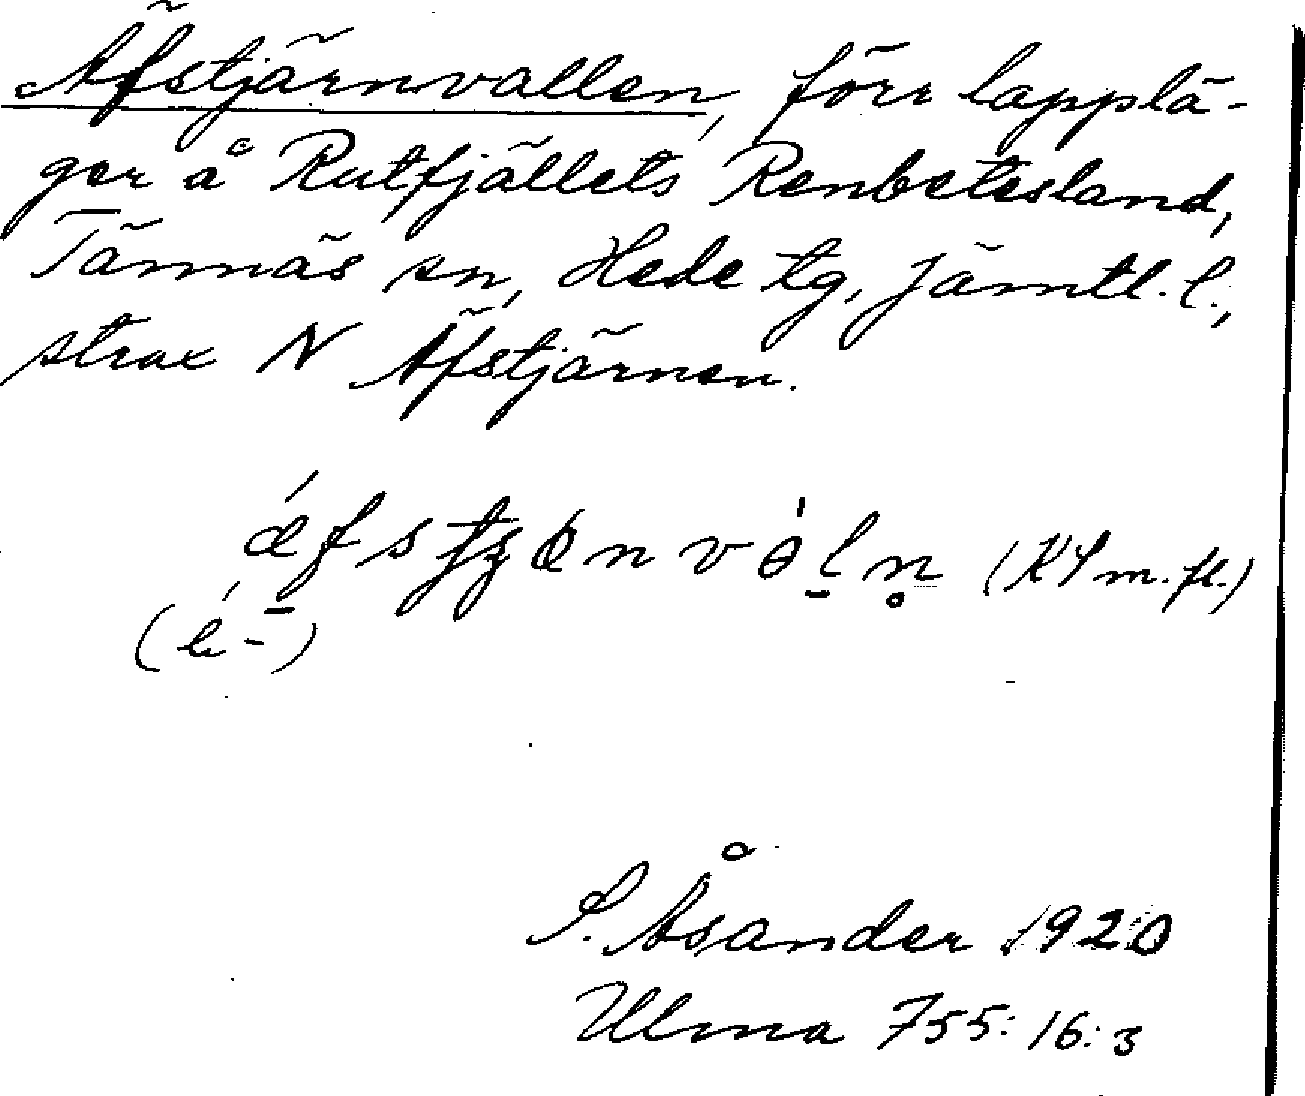 Äfstjärnvallen, förr lapplä-
ger å Rutfjällets Renbetesland,
Tännäs sn, Hede tg, Jämtl. l.,
strax N Äfstjärnen.
(KL m. fl.)
S. Åsander 1920
Ulma 755: 16: 3